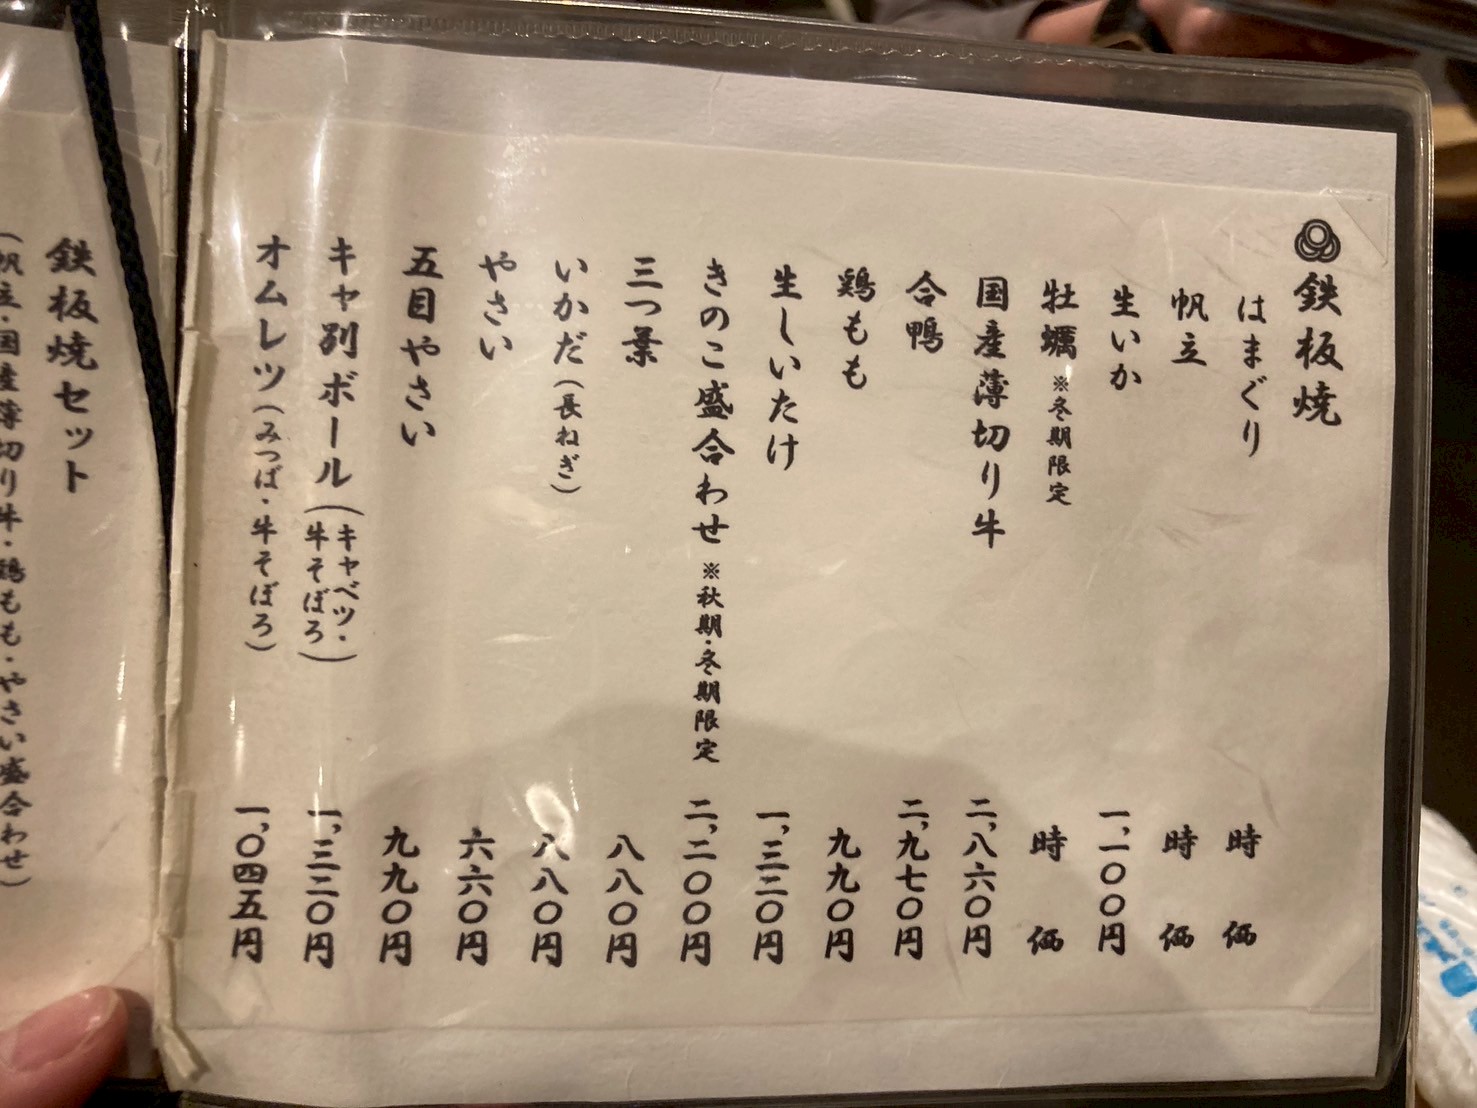 鉄板焼
はまぐり 時価
帆立 時価
生いか 一、一〇〇円
牡蠣 ※冬期限定 時価
国産薄切り牛 二、八六〇円
合鴨 二、九七〇円
鶏もも 九九〇円
生しいたけ 一、三二〇円
きのこ盛合わせ ※秋期・冬期限定 二、二〇〇円
三つ葉 八八〇円
いかだ(長ねぎ) 八八〇円
やさい 六六〇円
五目やさい 九九〇円
キャ別ボール(キャベツ・牛そぼろ) 一、三二〇円
オムレツ(みつば・牛そぼろ) 一、〇四五円
鉄板焼セット
(帆立・国産薄切り牛・鶏もも・やさい盛合わせ)